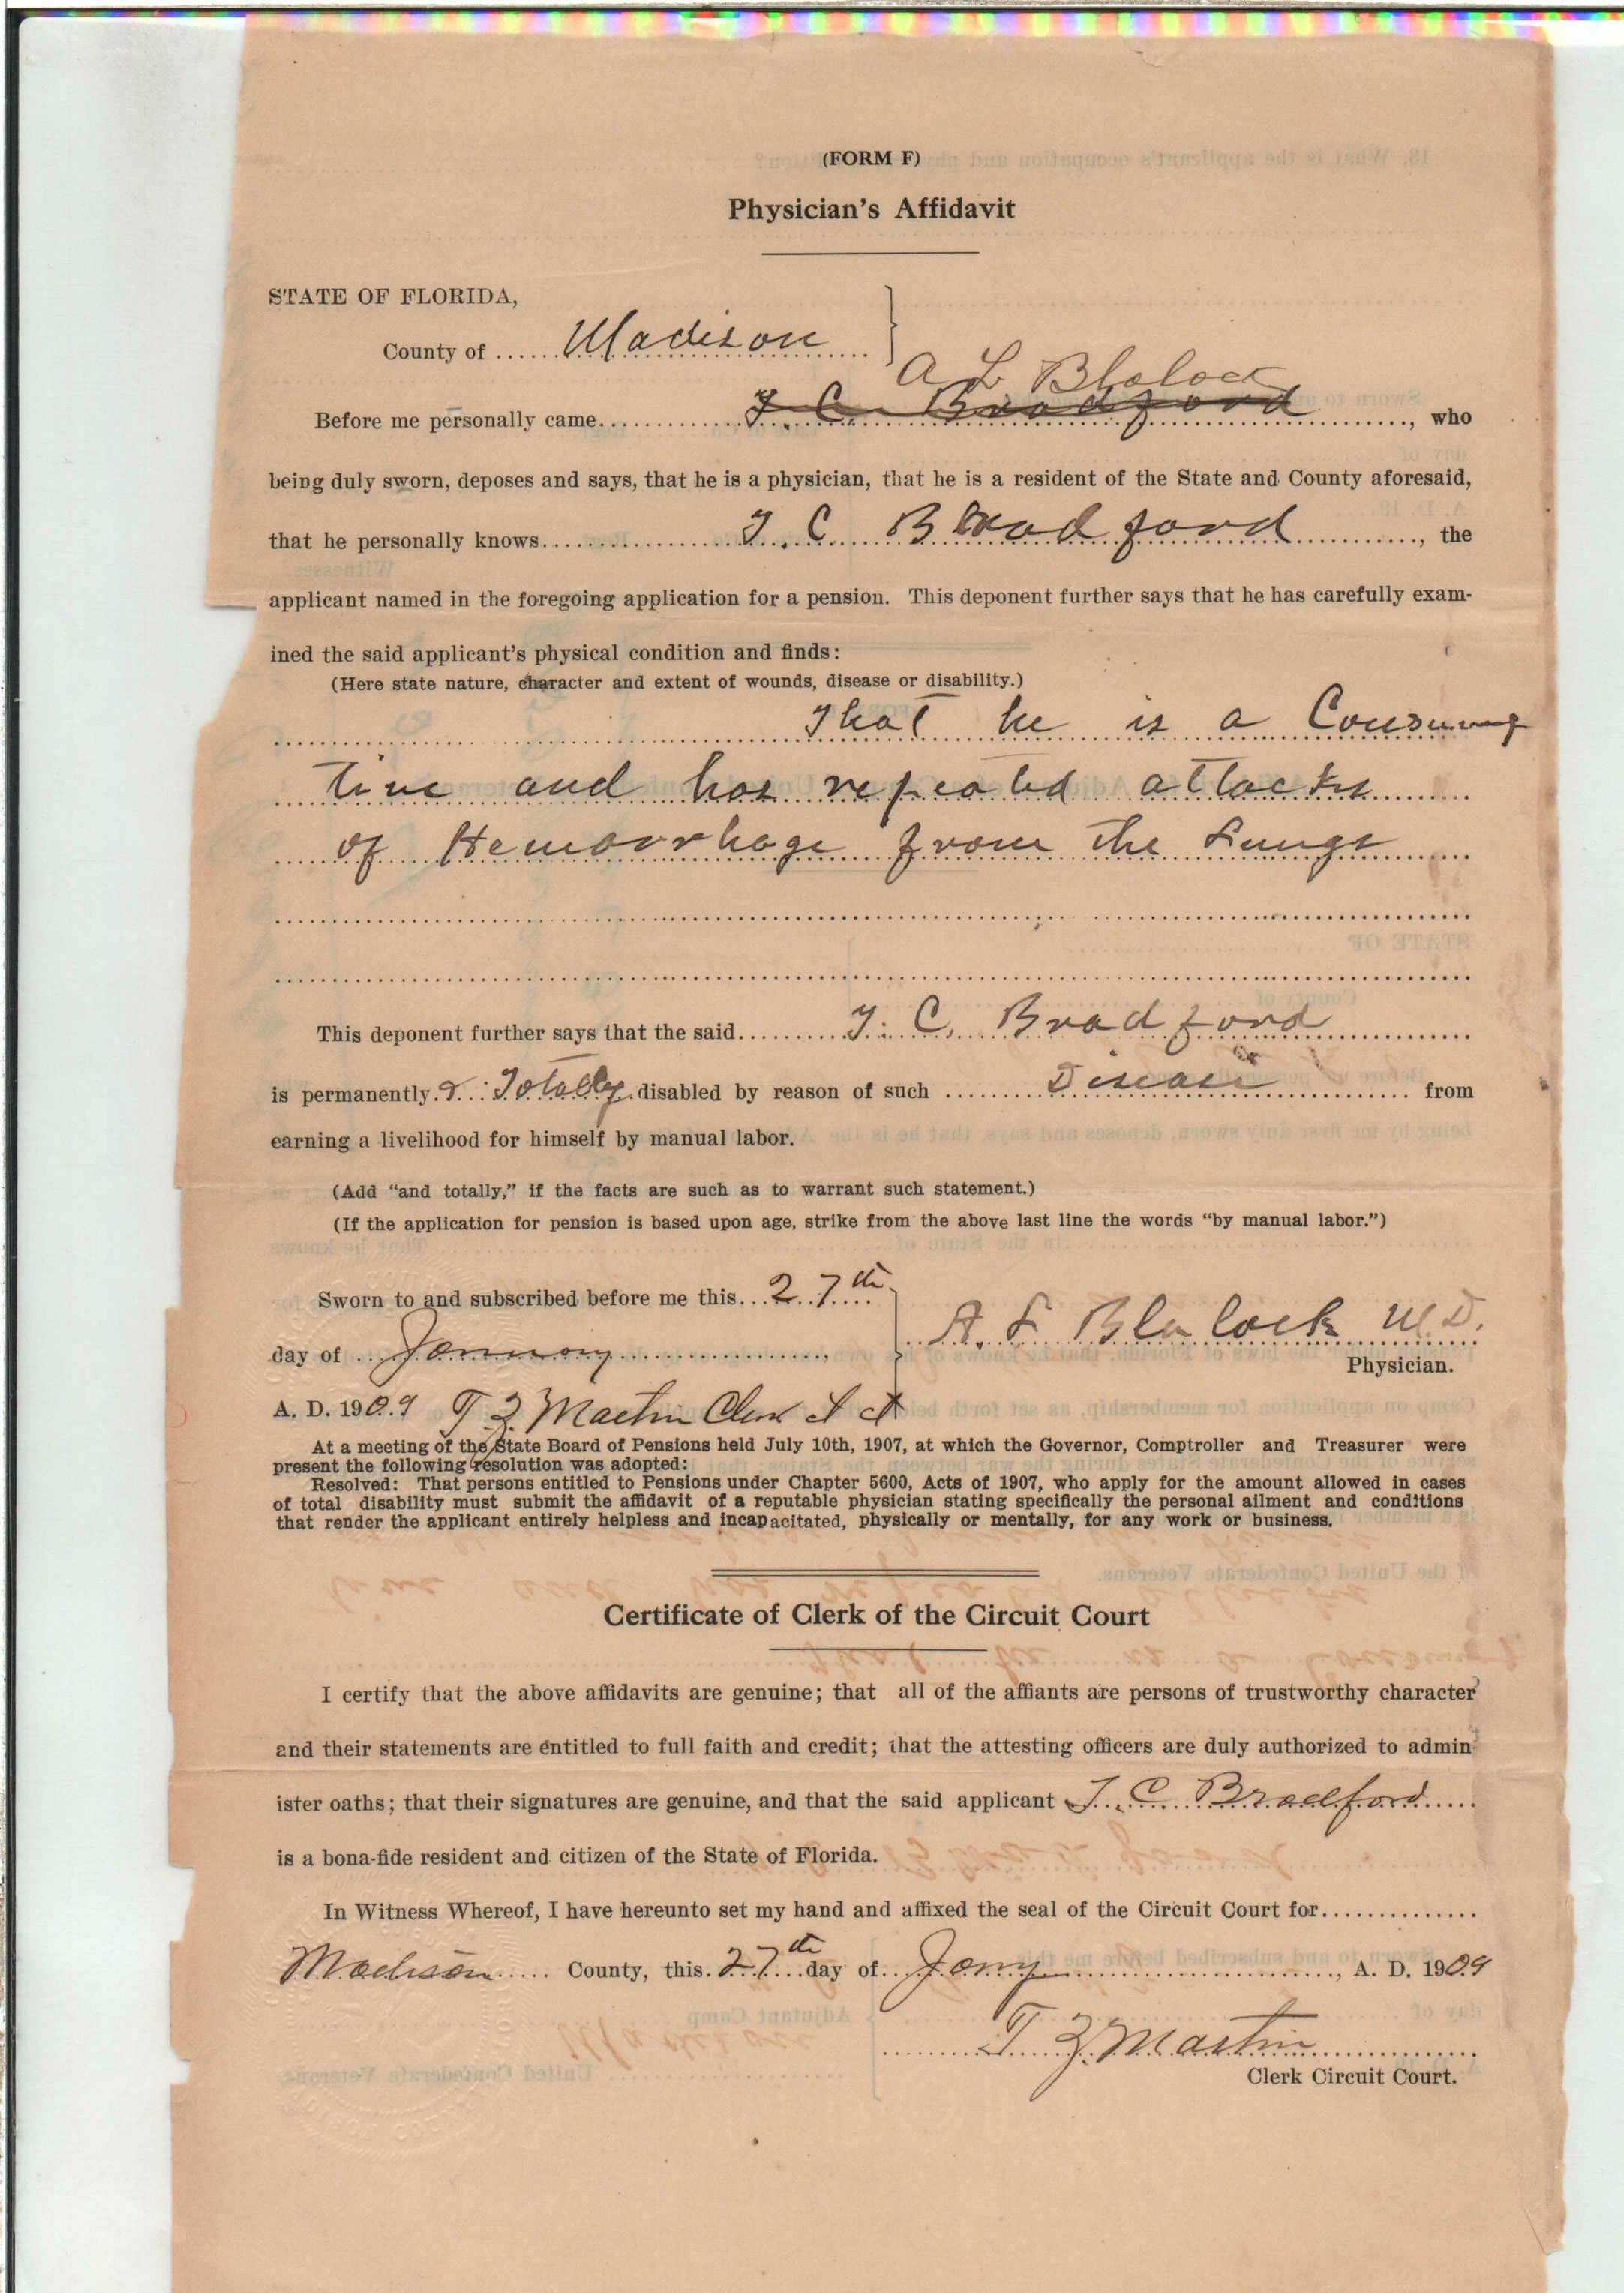 (FORM F)
Physician's Affidavit
STATE OF FLORIDA,
County of Madison
A L Blalock
Before me personally came T. C. Bradford, who
being duly sworn, deposes and says, that he is a physician, that he is a resident of the State and County aforesaid,
that he personally knows T. C. Bradford, the
applicant named in the foregoing application for a pension. This deponent further says that he has carefully exam-
ined the said applicant's physical condition and finds:
(Here state nature, character and extent of wounds, disease or disability.)
That he is a Consump
tive and has repeated attacks
of Hemorrhage from the Lungs
This deponent further says that the said T. C. Bradford
is permanently & Totally disabled by reason of such Disease from
earning a livelihood for himself by manual labor.
(Add "and totally," if the facts are such as to warrant such statement.)
(If the application for pension is based upon age, strike from the above last line the words "by manual labor.")
Sworn to and subscribed before me this 27th
day of January,
A. L. Blalock M.D.
Physician.
A. D. 1909 T Z Martin Clerk
At a meeting of the State Board of Pensions held July 10th, 1907, at which the Governor, Comptroller and Treasurer were
present the following resolution was adopted:
Resolved: That persons entitled to Pensions under Chapter 5600, Acts of 1907, who apply for the amount allowed in cases
of total disability must submit the affidavit of a reputable physician stating specifically the personal ailment and conditions
that render the applicant entirely helpless and incapacitated, physically or mentally, for any work or business.
Certificate of Clerk of the Circuit Court
I certify that the above affidavits are genuine; that all of the affiants are persons of trustworthy character
and their statements are entitled to full faith and credit; that the attesting officers are duly authorized to admin-
ister oaths; that their signatures are genuine, and that the said applicant T. C. Bradford
is a bona-fide resident and citizen of the State of Florida.
In Witness Whereof, I have hereunto set my hand and affixed the seal of the Circuit Court for
Madison County, this 27th day of Jany, A. D. 1909
T Z Martin
Clerk Circuit Court.